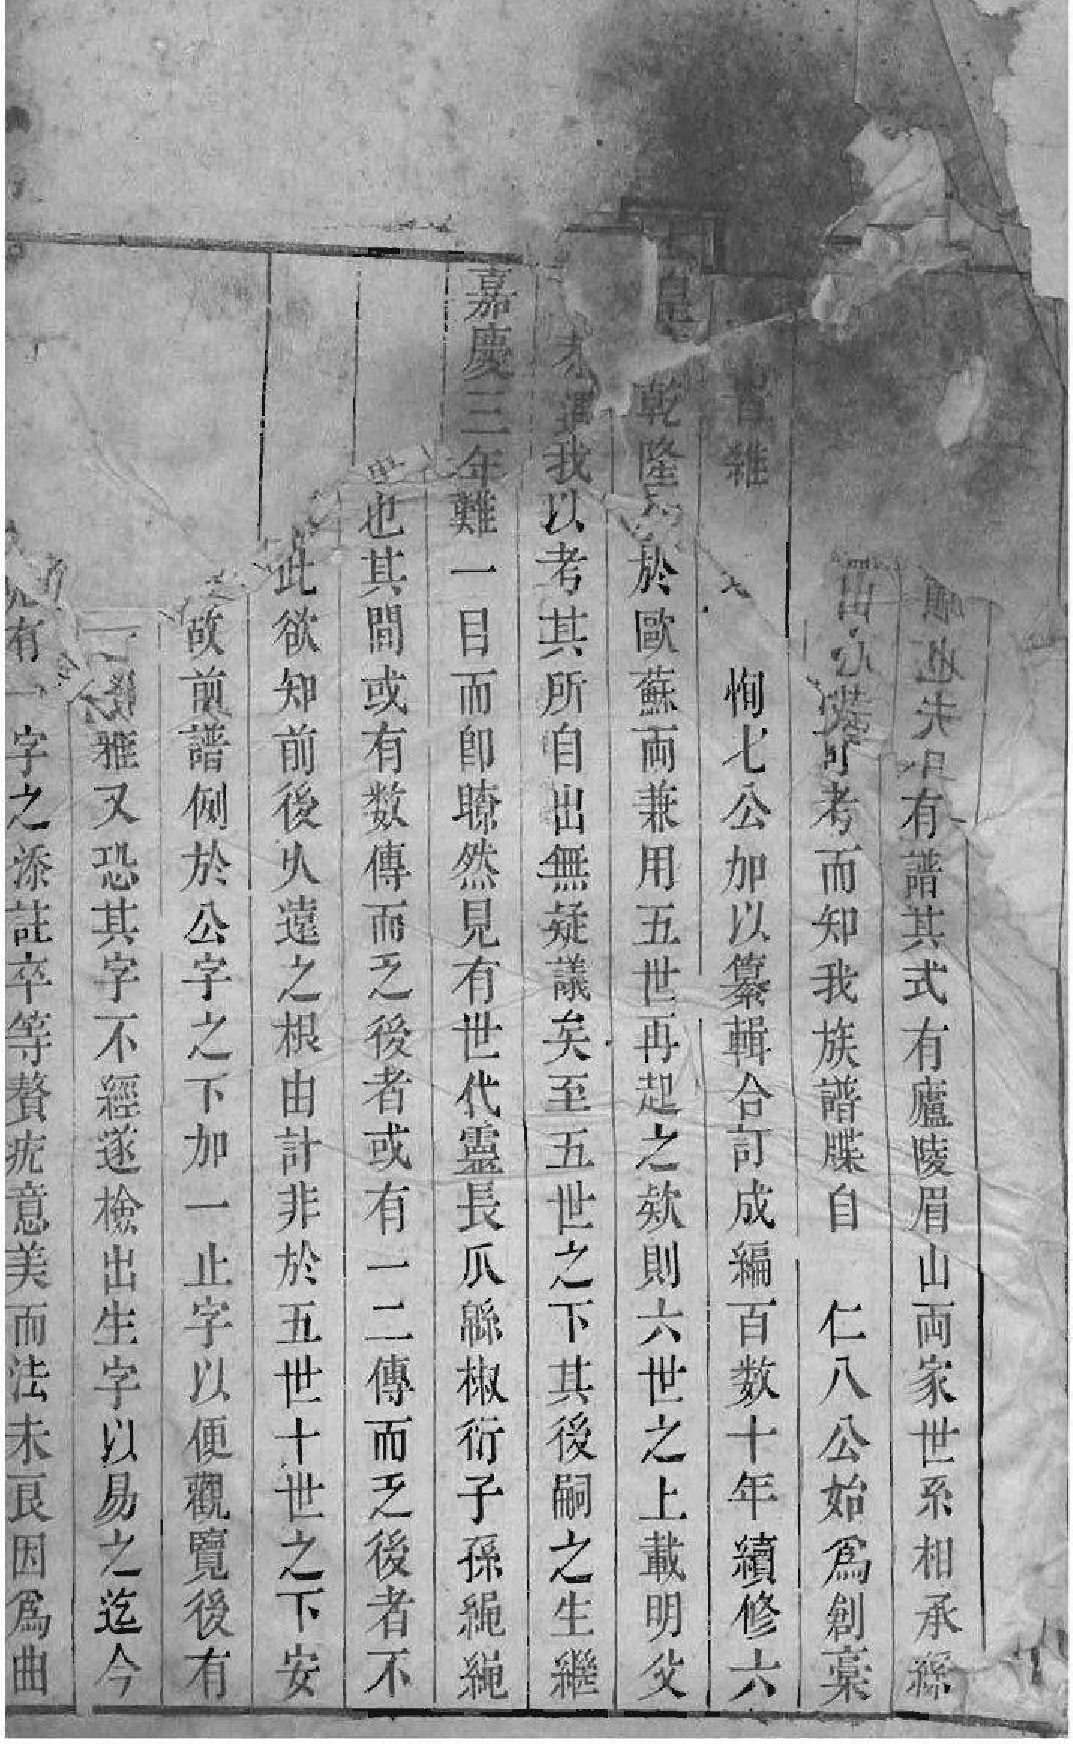 也夫 有譜其式有廬陵眉山両家世系相承
山公 可考而知我族譜牒自 仁八公始爲創稾
雜 恂七公加以纂輯合訂成編百数十年續修六
乾隆 於歐蘇両兼用五世再起之欸則六世之上載明父
我以考其所自出無疑議矣至五世之下其後嗣之生繼
嘉慶三年難一目而即瞭然見有世代靈長瓜緜椒衍子孫繩繩
也其間或有数傳而乏後者或有一二傳而乏後者不
此欲知前後乆遠之根由計非於五世十世之下安
故前譜例於公字之下加一止字以便觀覽後有
雅又恐其字不經遂檢出生字以易之迄今
有一字之添註卒等贅疣意美而法未良因爲曲